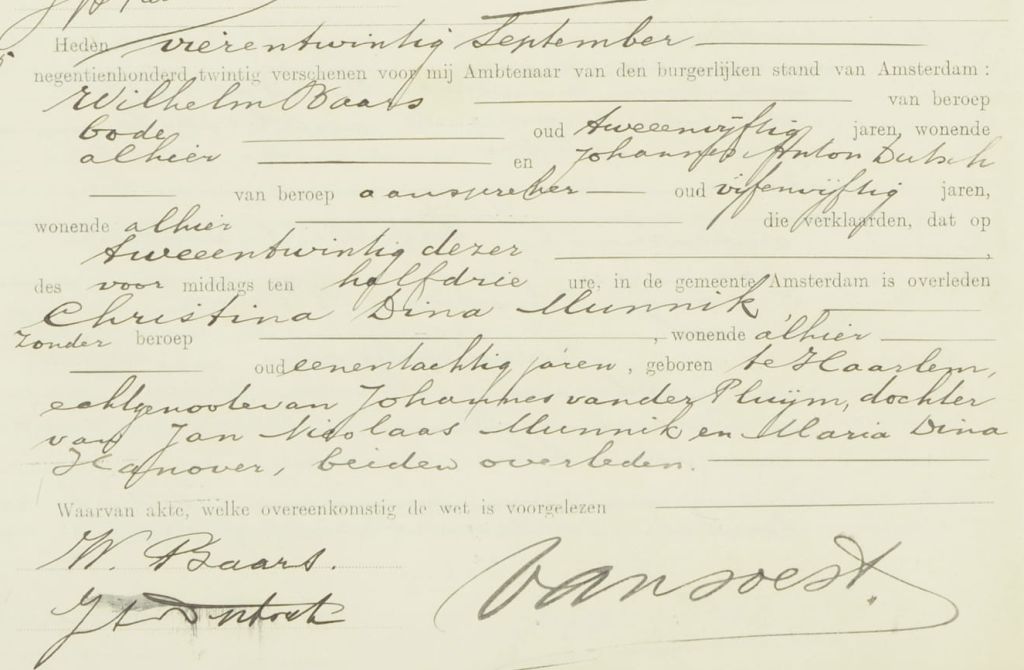 Heden vierentwintig September
negentienhonderd twintig verschenen voor mij Ambtenaar van den burgerlijken stand van Amsterdam:
Wilhelm Baars van beroep
bode oud tweeenvijftig jaren, wonende
alhier en Johannes Anton Dutsch
van beroep aanspreker oud vijfenvijftig jaren,
wonende alhier die verklaarden, dat op
tweeentwintig dezer,
des voor middags ten halfdrie ure, in de gemeente Amsterdam is overleden
Christina Dina Munnik
zonder beroep, wonende alhier
oud eenentachtig jaren, geboren te Haarlem,
echtgenoote van Johannes van der Pluijm, dochter
van Jan Nicolaas Munnik en Maria Dina
Hanover, beiden overleden.
Waarvan akte, welke overeenkomstig de wet is voorgelezen
W. Baars.
van Soest.